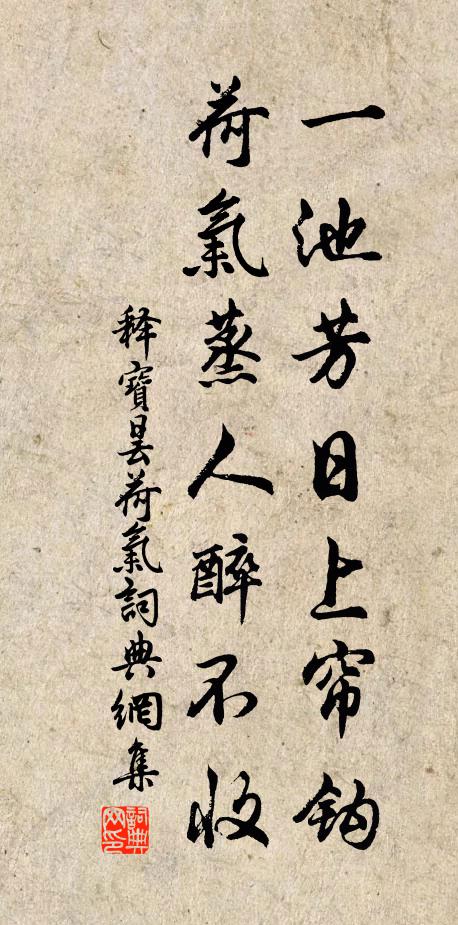 一池芳日上帘钩
荷氣蒸人醉不收
释寶曇荷氣詞典網集
詞典网印